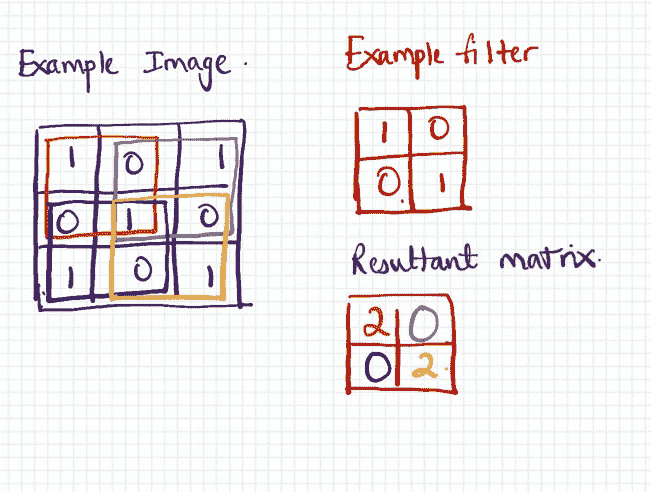 Example Image.
1 0 1
0 1 0
1 0 1
Example filter
1 0
0 1
Resultant matrix.
2 0
0 2